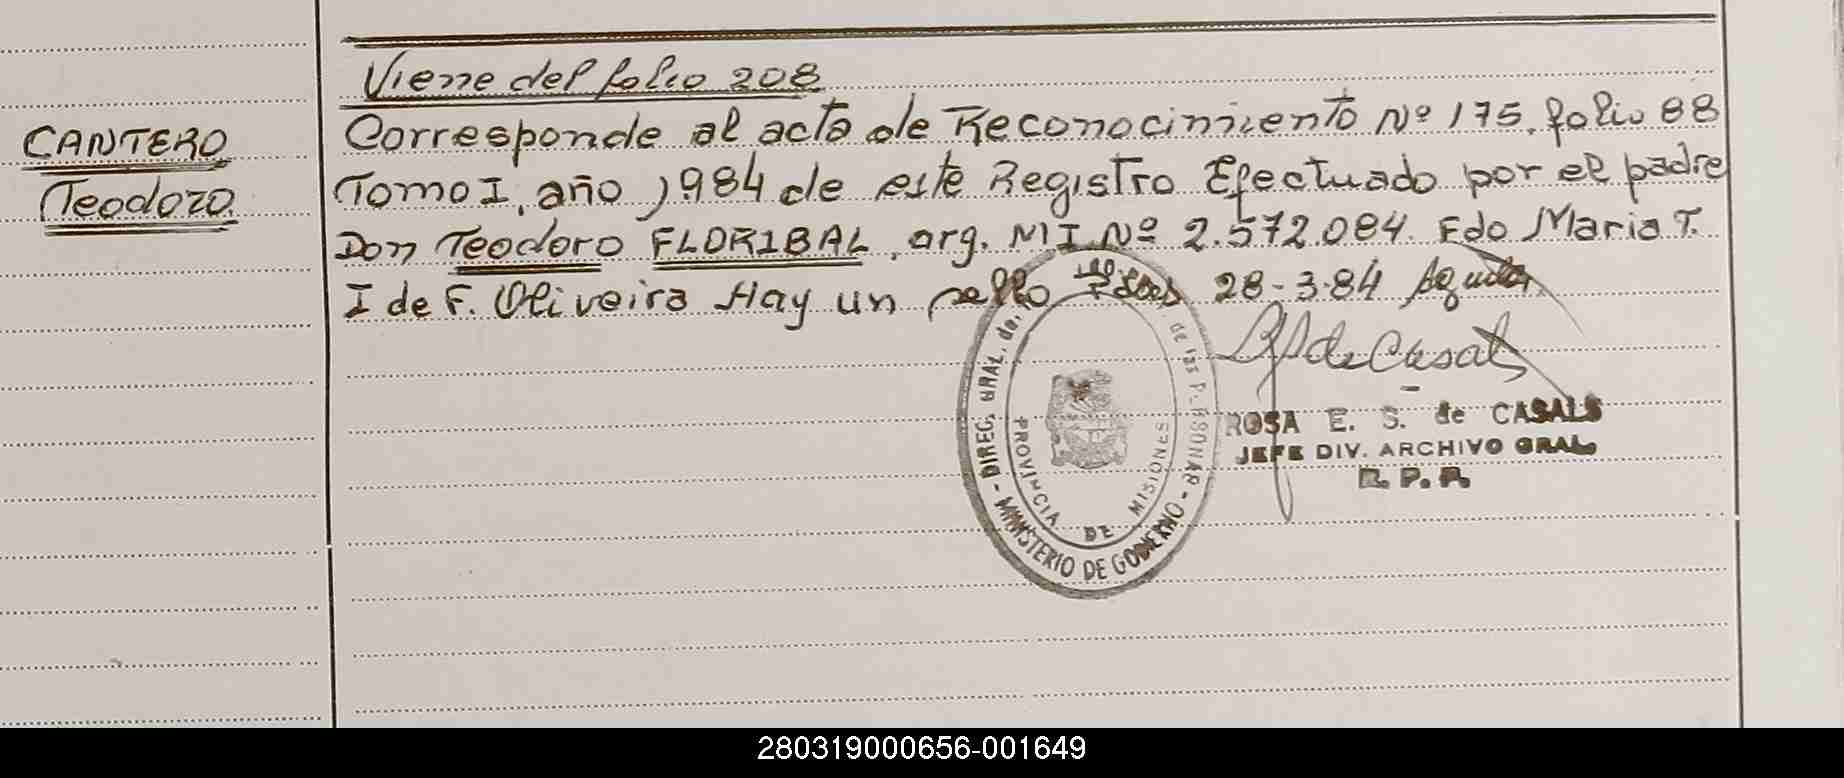 Viene del folio 208
CANTERO
Teodoro.
Corresponde al acta de Reconocimiento Nº 175. folio 88
Tomo I, año 1984 de este Registro Efectuado por el padre
Don Teodoro FLORIBAL, arg. MI Nº 2.572.084. Fdo Maria T.
I de F. Oliveira Hay un sello 28-3-84
de Casals
ROSA E. S. de CASALS
JEFE DIV. ARCHIVO GRAL
R. P. P.
DIREC. GRAL. de las PERSONAS - MINISTERIO DE GOBIERNO -
PROVINCIA DE MISIONES
280319000656-001649